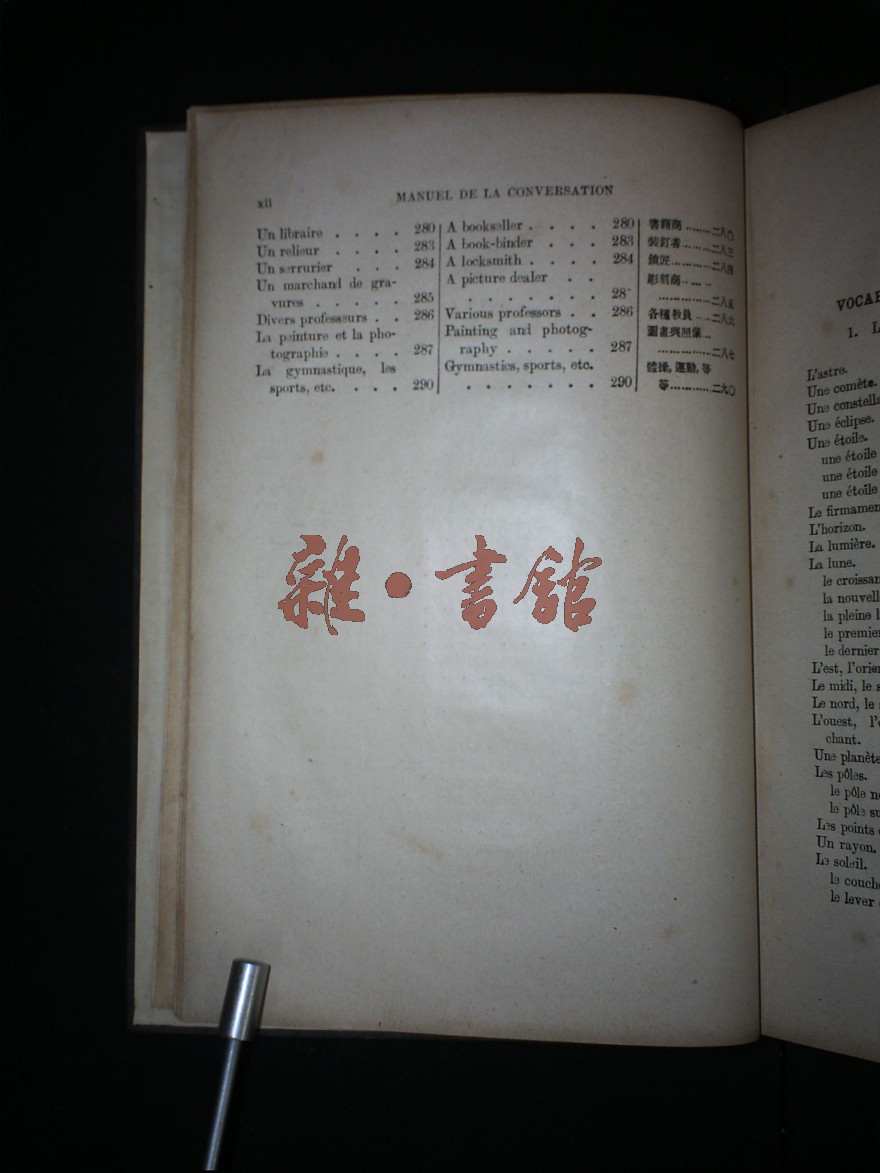 xii
MANUEL DE LA CONVERSATION
Un libraire . . . . 280
Un relieur . . . . 283
Un serrurier . . . 284
Un marchand de gra-
vures . . . . . 285
Divers professeurs . . 286
La peinture et la pho-
tographie . . . . 287
La gymnastique, les
sports, etc. . . . 290
A bookseller . . . . 280
A book-binder . . . 283
A locksmith . . . . 284
A picture dealer . .
. . . . . . . 28
Various professors . . 286
Painting and photog-
raphy . . . . . 287
Gymnastics, sports, etc.
. . . . . . . 290
書籍商 ........二八〇
裝釘者........二八三
鎖匠............二八四
彫刻商........
...............二八五
各種教員 ....二八六
圖畫與照像..
...............二八七
體操, 運動, 等
等............二九〇
雜·書館
VOCAB
1. L
L'astre.
Une comète.
Une constella
Une éclipse.
Une étoile.
une étoile
une étoile
une étoile
Le firmamen
L'horizon.
La lumière.
La lune.
le croissan
la nouvell
la pleine l
le premier
le dernier
L'est, l'orien
Le midi, le s
Le nord, le
L'ouest, l'o
chant.
Une planète
Les pôles.
le pôle no
le pôle su
Les points
Un rayon.
Le soleil.
le couche
le lever